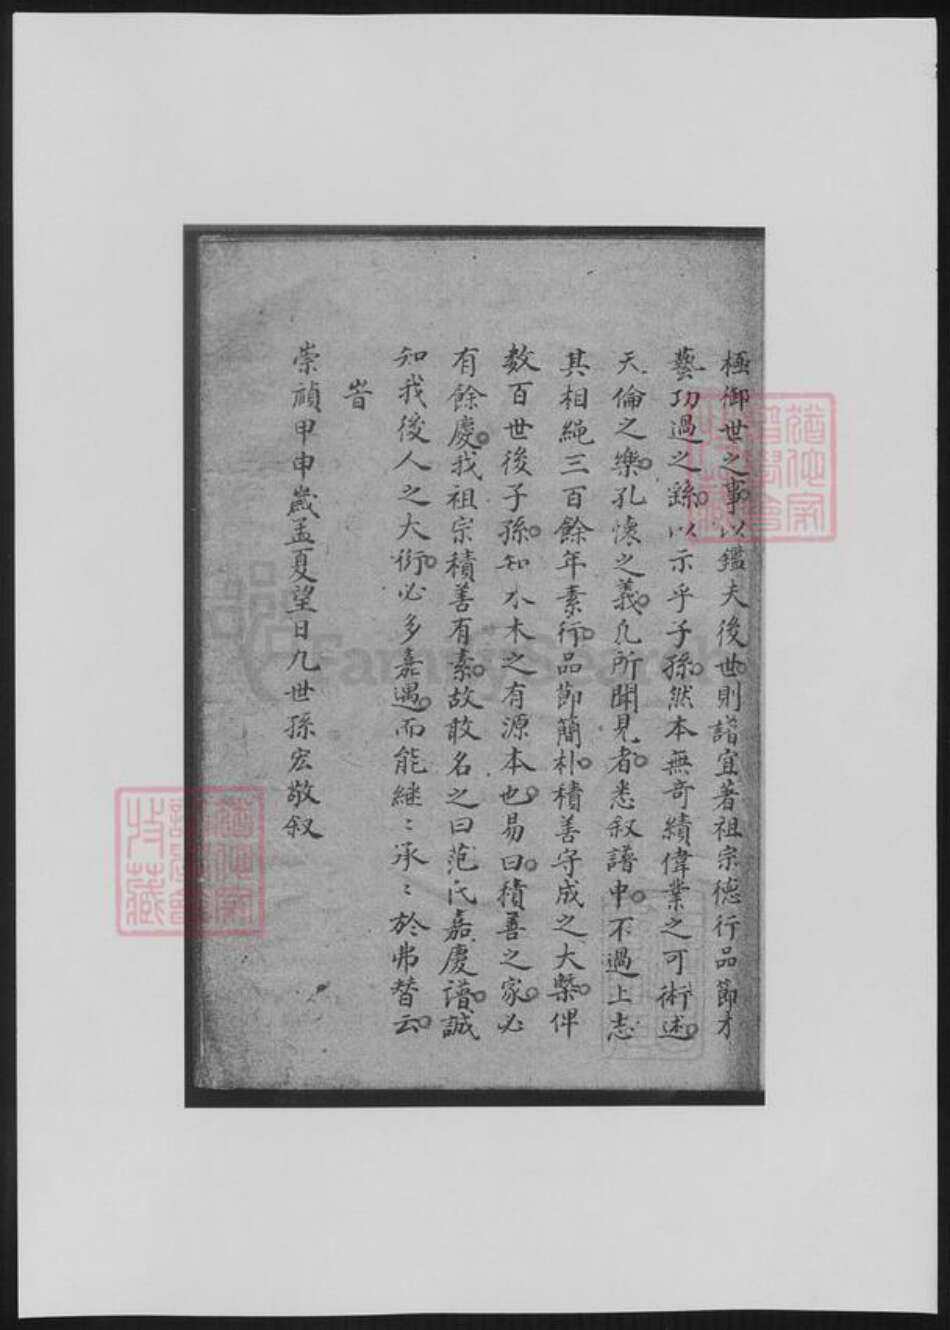 極御世之事以鑑夫後世則譜宜著祖宗德行品節才
藝功過之繇以示乎子孫然本無竒績偉業之可術述
天倫之樂孔懷之義凢所聞見者悉叙譜中不過上志
其相繩三百餘年素行品節簡朴積善守成之大槩俾
数百世後子孫知水木之有源本也易曰積善之家必
有餘慶我祖宗積善有素故敢名之曰范氏嘉慶譜誠
知我後人之大衍必多嘉遇而能継〻承〻於弗替云
旹
崇禎甲申歲孟夏望日九世孫宏敬叙
FamilySearch